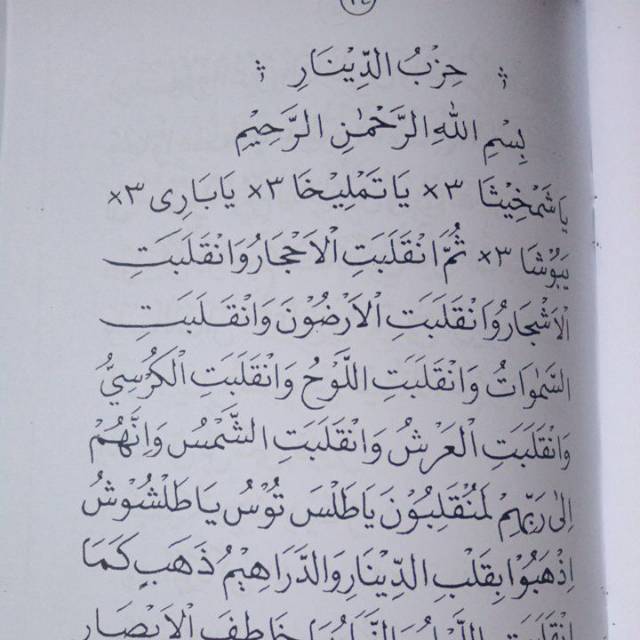 حِزْبُ الدِّيْنَارِ
بِسْمِ اللهِ الرَّحْمٰنِ الرَّحِيْمِ
يَا شَمْخِيْثَا ×٣ يَا تَمْلِيْخَا ×٣ يَا بَارِى ×٣
يَبُوْشَا ×٣ ثُمَّ انْقَلَبَتِ الْاَحْجَارُ وَانْقَلَبَتِ
الْاَشْجَارُ وَانْقَلَبَتِ الْاَرْضُوْنَ وَانْقَلَبَتِ
السَّمٰوَاتُ وَانْقَلَبَتِ اللَّوْحُ وَانْقَلَبَتِ الْكُرْسِيُّ
وَانْقَلَبَتِ الْعَرْشُ وَانْقَلَبَتِ الشَّمْسُ وَاِنَّهُمْ
اِلٰى رَبِّهِمْ لَمُنْقَلِبُوْنَ يَا طَلْسَ تُوْسُ يَا طَلْشُوْشُ
اِذْهَبُوْا بِقَلْبِ الدِّيْنَارِ وَالدَّرَاهِيْمُ ذَهَبٍ كَمَا
خَاطِفَ الْاَبْصَارِ